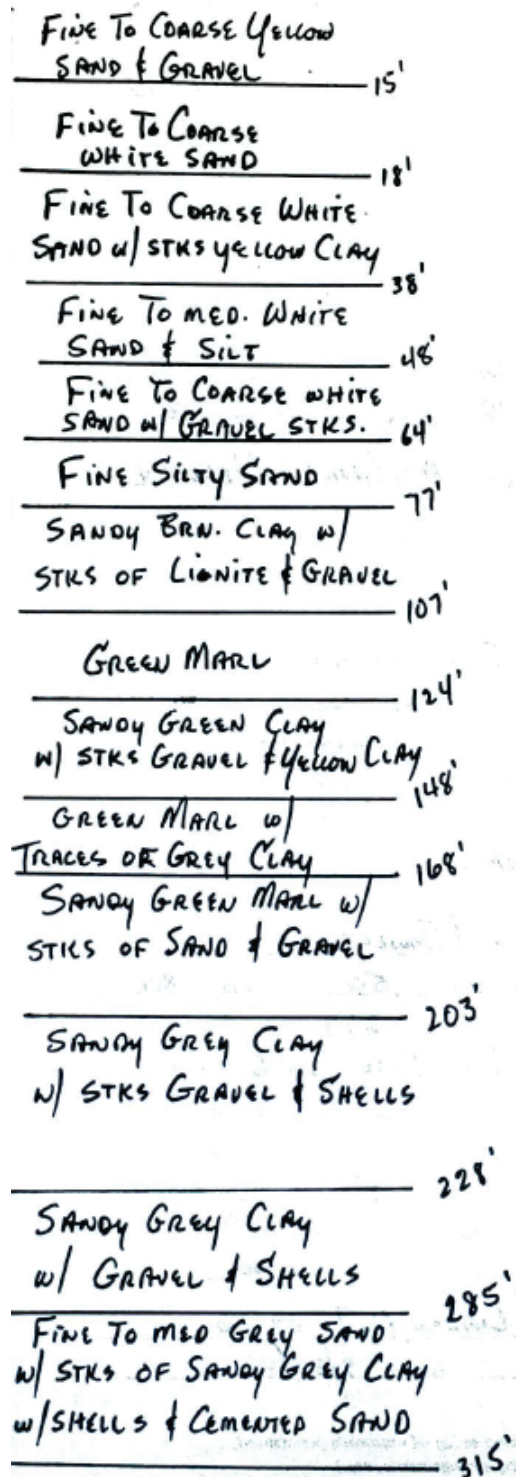 FINE TO COARSE YELLOW
SAND & GRAVEL
15'
FINE TO COARSE
WHITE SAND
18'
FINE TO COARSE WHITE
SAND W/ STKS YELLOW CLAY
38'
FINE TO MED. WHITE
SAND & SILT
48'
FINE TO COARSE WHITE
SAND W/ GRAVEL STKS.
64'
FINE SILTY SAND
77'
SANDY BRN. CLAY W/
STKS OF LIGNITE & GRAVEL
107'
GREEN MARL
124'
SANDY GREEN CLAY
W/ STKS GRAVEL & YELLOW CLAY
148'
GREEN MARL W/
TRACES OF GREY CLAY
168'
SANDY GREEN MARL W/
STKS OF SAND & GRAVEL
203'
SANDY GREY CLAY
W/ STKS GRAVEL & SHELLS
228'
SANDY GREY CLAY
W/ GRAVEL & SHELLS
285'
FINE TO MED GREY SAND
W/ STKS OF SANDY GREY CLAY
W/ SHELLS & CEMENTED SAND
315'